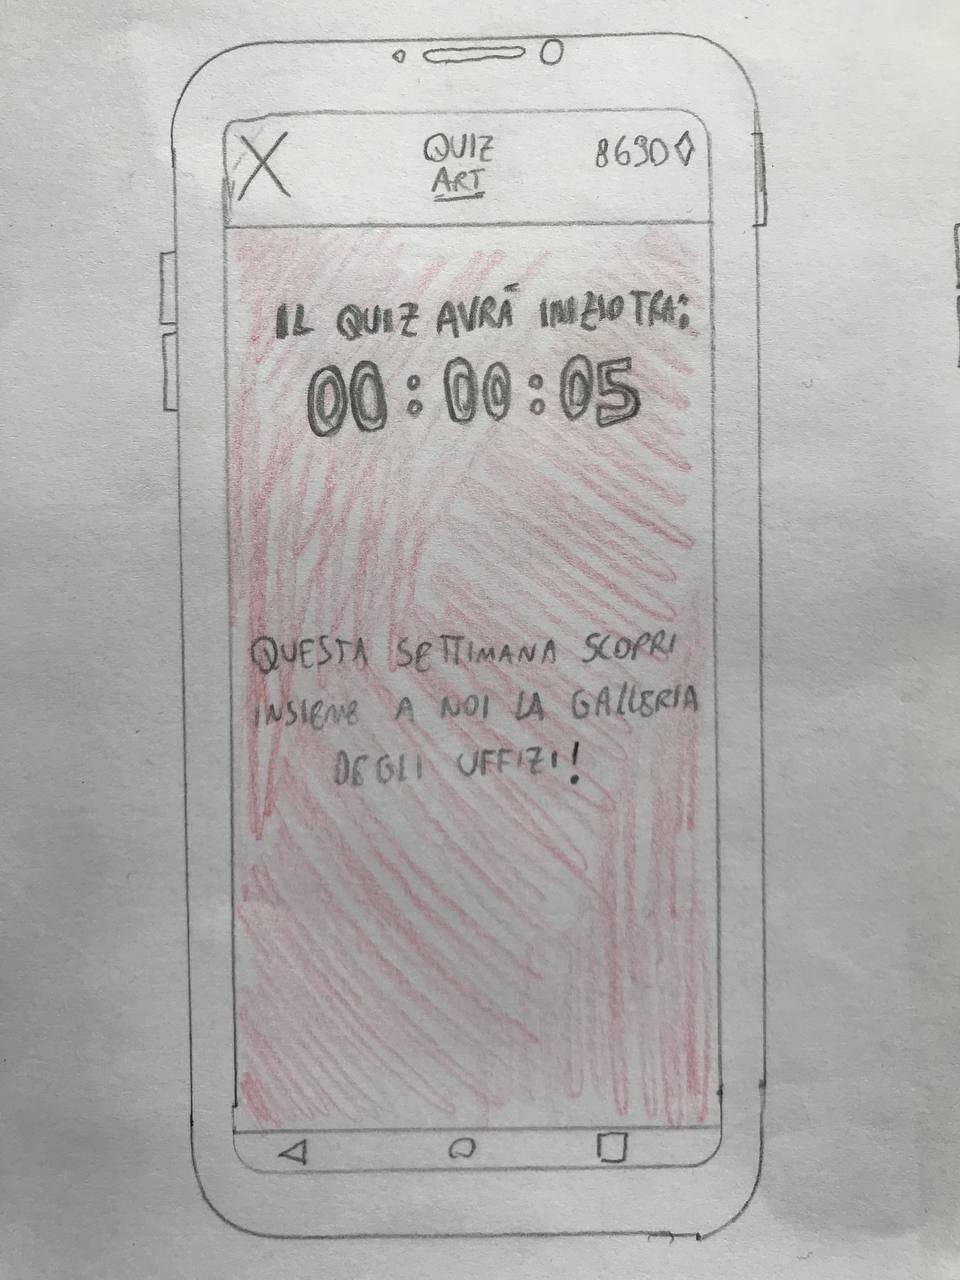 X
QUIZ
ART
8690◊
IL QUIZ AVRÀ INIZIO TRA:
00:00:05
QUESTA SETTIMANA SCOPRI
INSIEME A NOI LA GALLERIA
DEGLI UFFIZI!